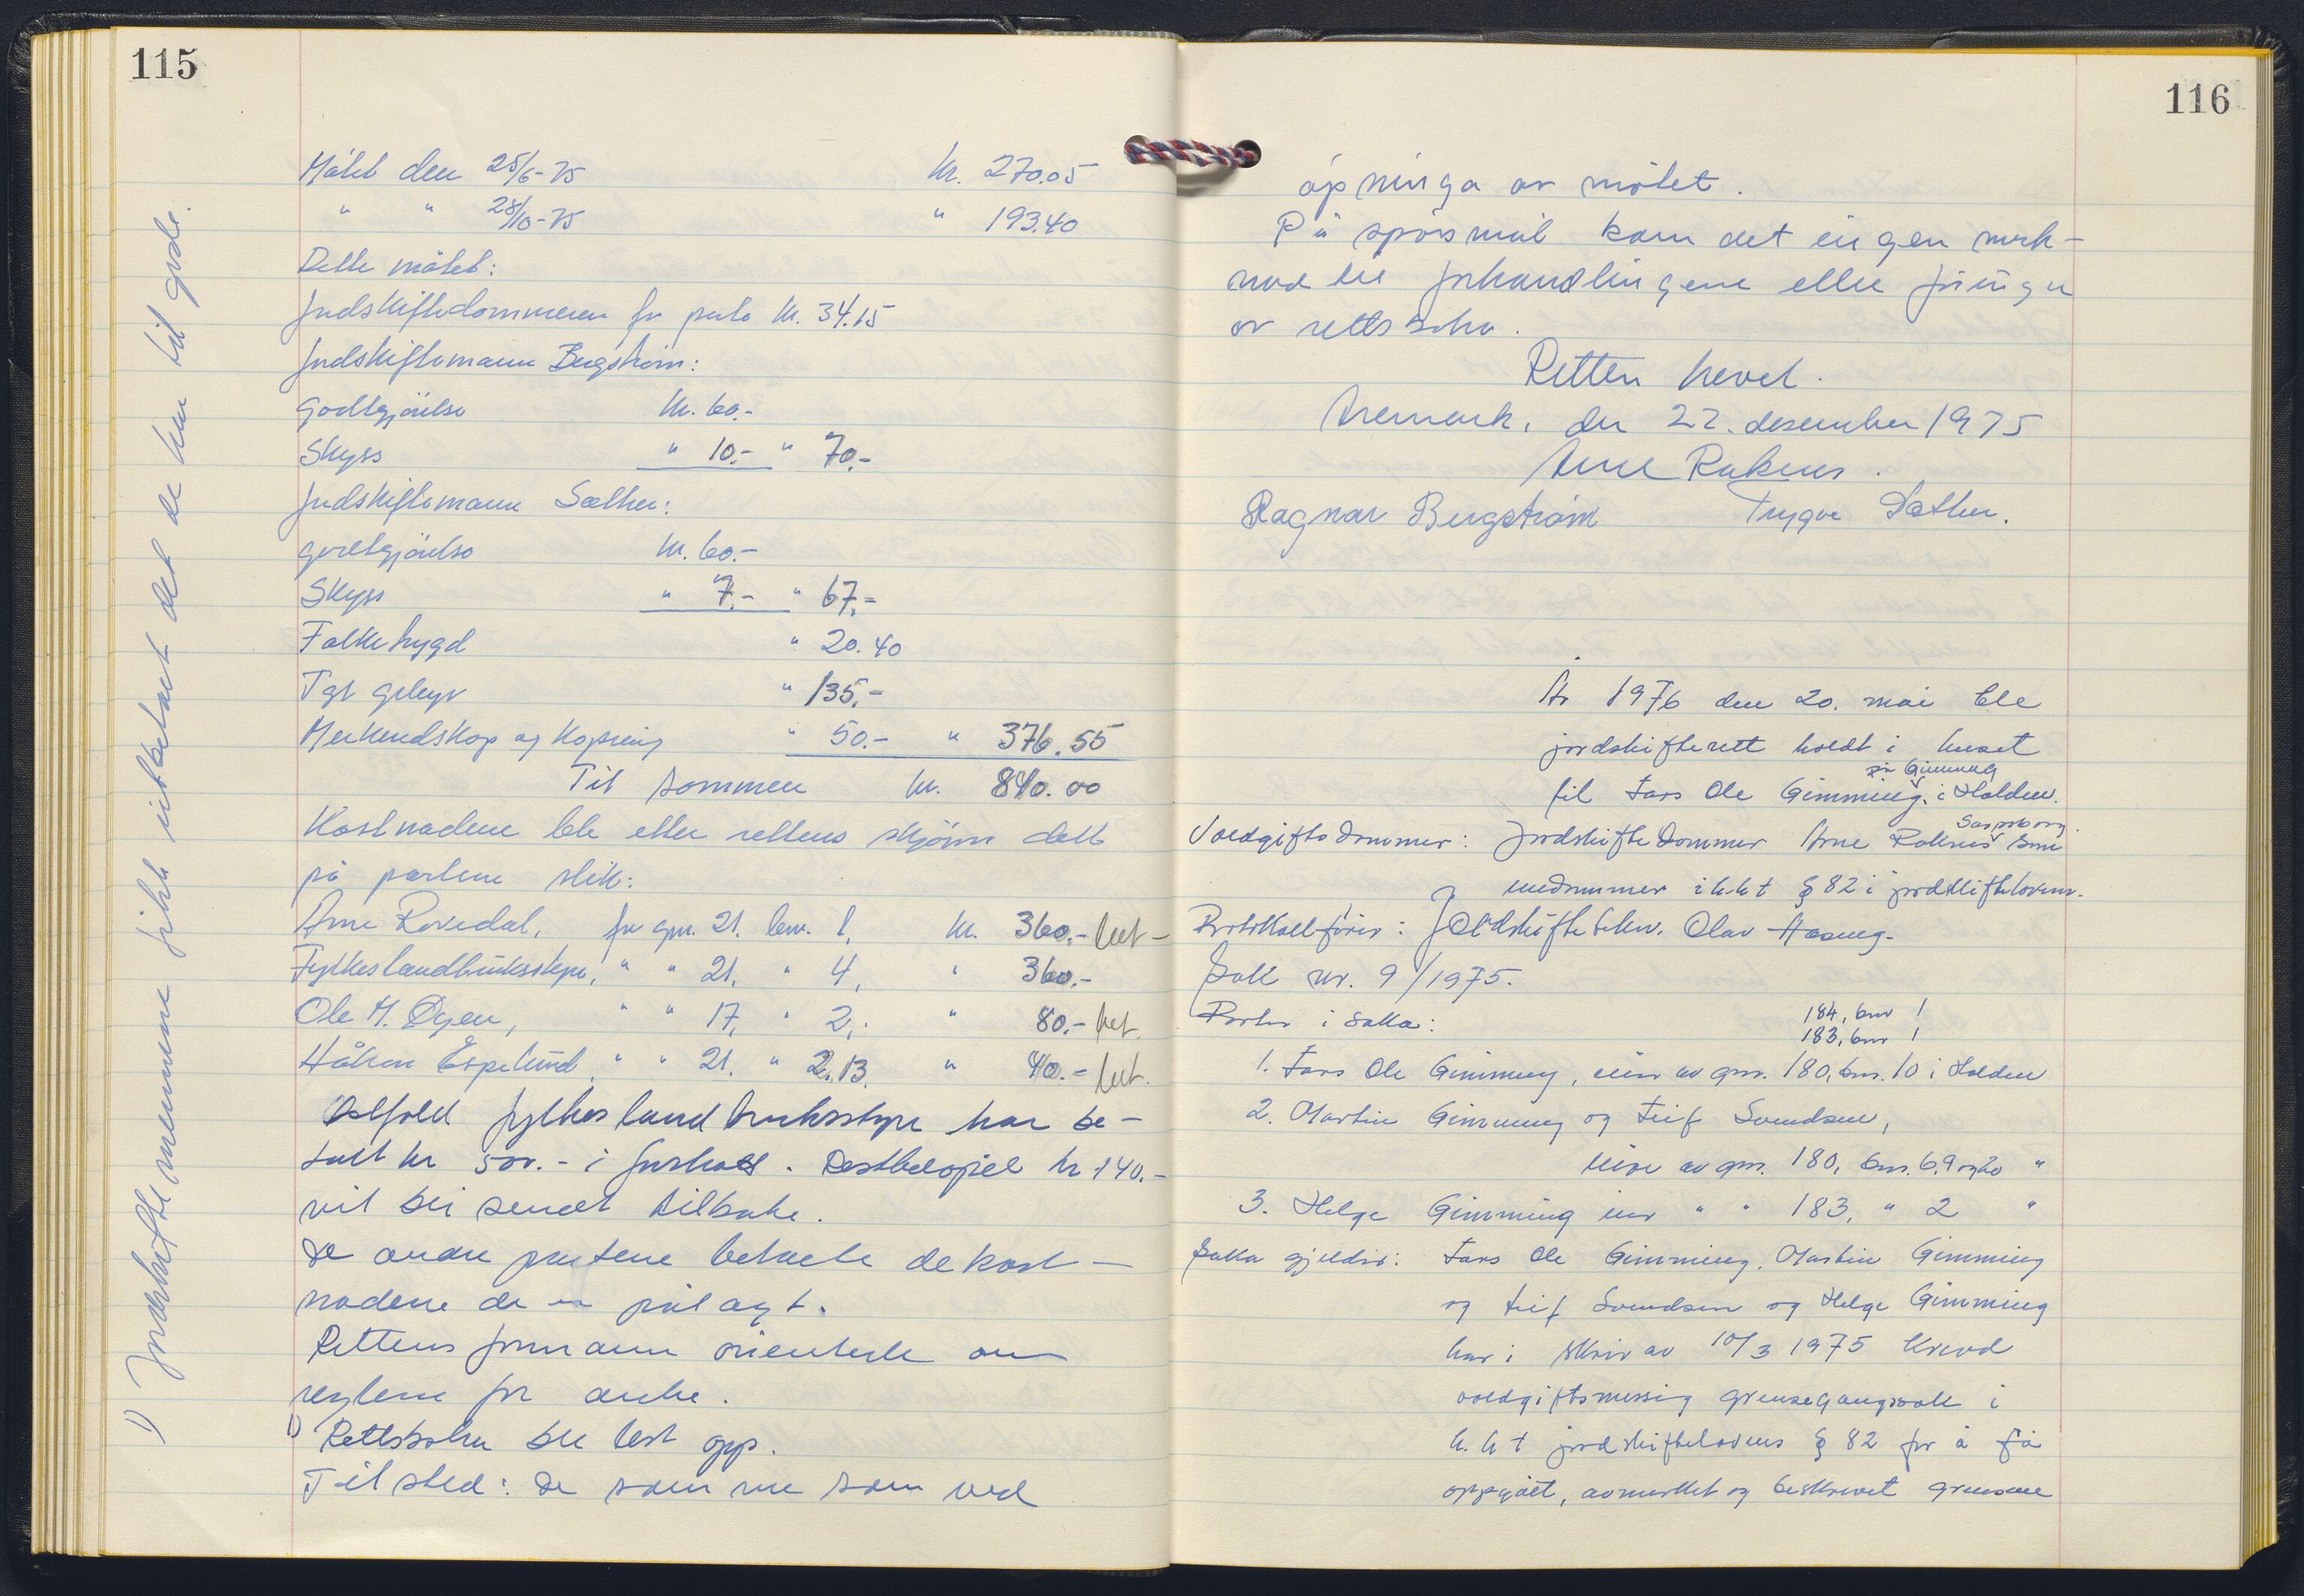 115
Møtet den 25/6-75 kr. 270.05
" " 28/10-75 " 193.40
Dette møtet:
Jordskiftedommeren for porto kr. 34.15
Jordskiftemann Bergstrøm:
godtgjørelse kr. 60.-
Skyss " 10.- " 70.-
Jordskiftemann Sæther:
godtgjørelse kr. 60.-
Skyss " 7.- " 67.-
Folketrygd " 20.40
Tgl gebyr " 135.-
Merkeredskap og kopiering " 50.- " 376.55
Til sammen kr. 840.00
Kostnadene ble etter rettens skjønn delt
på partene slik:
Arne for gnr. 21. bnr. 1, kr. 360.- bet -
Fylkeslandbruksstyre, " " 21. " 4, " 360.-
Ole M. Øgen, " " 17, " 2, " 80.- bet.
Håkon Espelund, " " 21. " 2,13. " 40.- bet.
Østfold fylkeslandbruksstyre har be-
talt kr 500.- i forskott. Restbeløpet kr 140.-
vil bli sendt tilbake.
De andre partene betalte de kost-
nadene de er pålagt.
Rettens formann orienterte om
reglene for anke.
1) Rettsboka ble lest opp.
Til sted: De samme som ved
1) Jordskiftemennene fikk utbetalt det de har til gode.
116
åpninga av møtet.
På spørsmål kom det ingen merk-
nad til forhandlingene eller føringa
av rettsboka.
Retten hevet.
Aremark, den 22. desember 1975
Arne Raknes.
Ragnar Bergstrøm Trygve Sæther.
År 1976 den 20. mai ble
jordskifterett holdt i huset
på Gimming
til Lars Ole Gimming, i Halden.
Sarpsborg.
Voldgiftsdommer: Jordskiftedommer Arne Raknes som
enedommer i h.h.t § 82 i jordskifteloven.
Protokollfører: Jordskiftetekn. Olav
Sak nr. 9/1975.
Parter i saka:
184, bnr 1
183, bnr 1
1. Lars Ole Gimming, eier av gnr. 180, bnr. 10 i Halden
2. Martin Gimming og Leif Svendsen,
eiere av gnr. 180, bnr. 6,9 og 20 "
3. Helge Gimming eier " " 183, " 2 "
Saka gjelder: Lars Ole Gimming, Martin Gimming
og Leif Svendsen og Helge Gimming
har i skriv av 10/3 1975 krevd
voldgiftsmessig grensegangssak i
h.h t jordskiftelovens § 82 for å få
oppgått, avmerket og beskrevet grensene